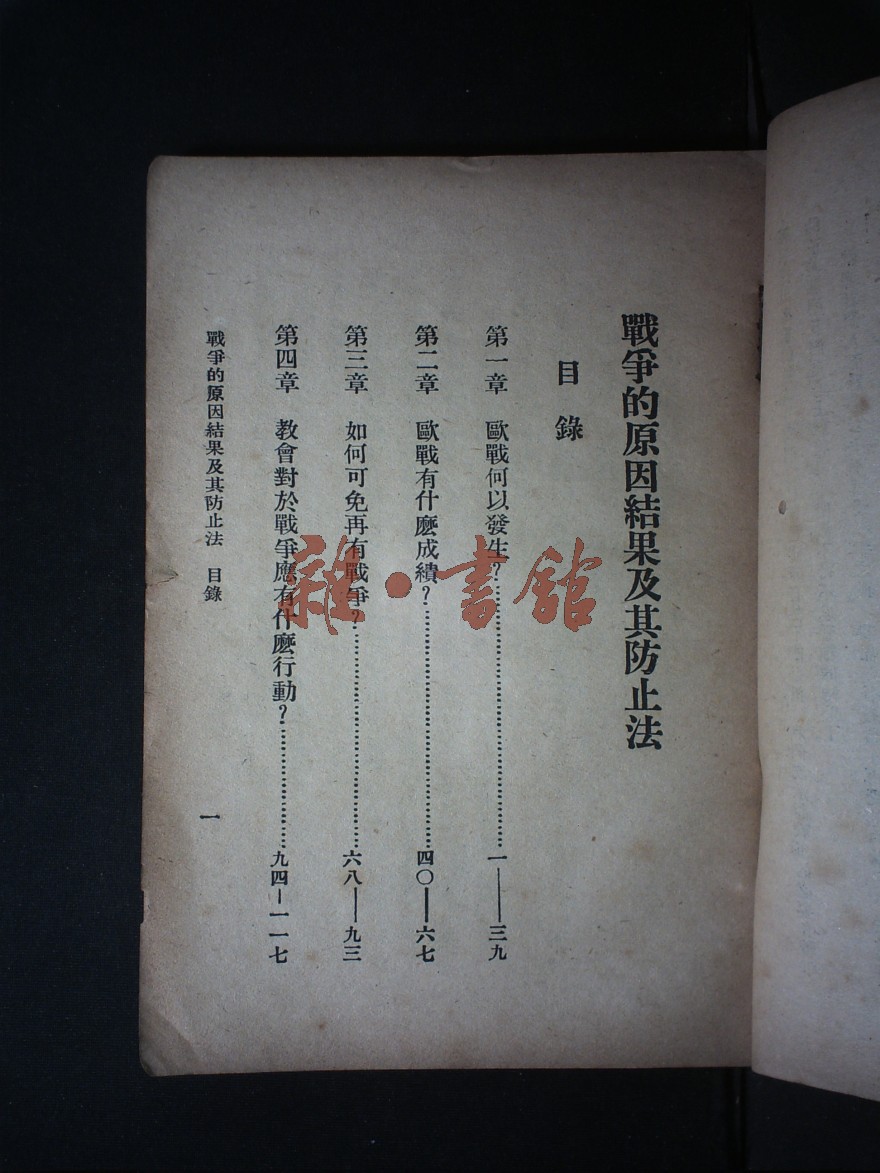 戰爭的原因結果及其防止法
目錄
第一章　歐戰何以發生？……一——三九
第二章　歐戰有什麽成績？……四〇——六七
第三章　如何可免再有戰爭？……六八——九三
第四章　教會對於戰爭應有什麽行動？……九四－一一七
戰爭的原因結果及其防止法　目錄
一
雜·書館